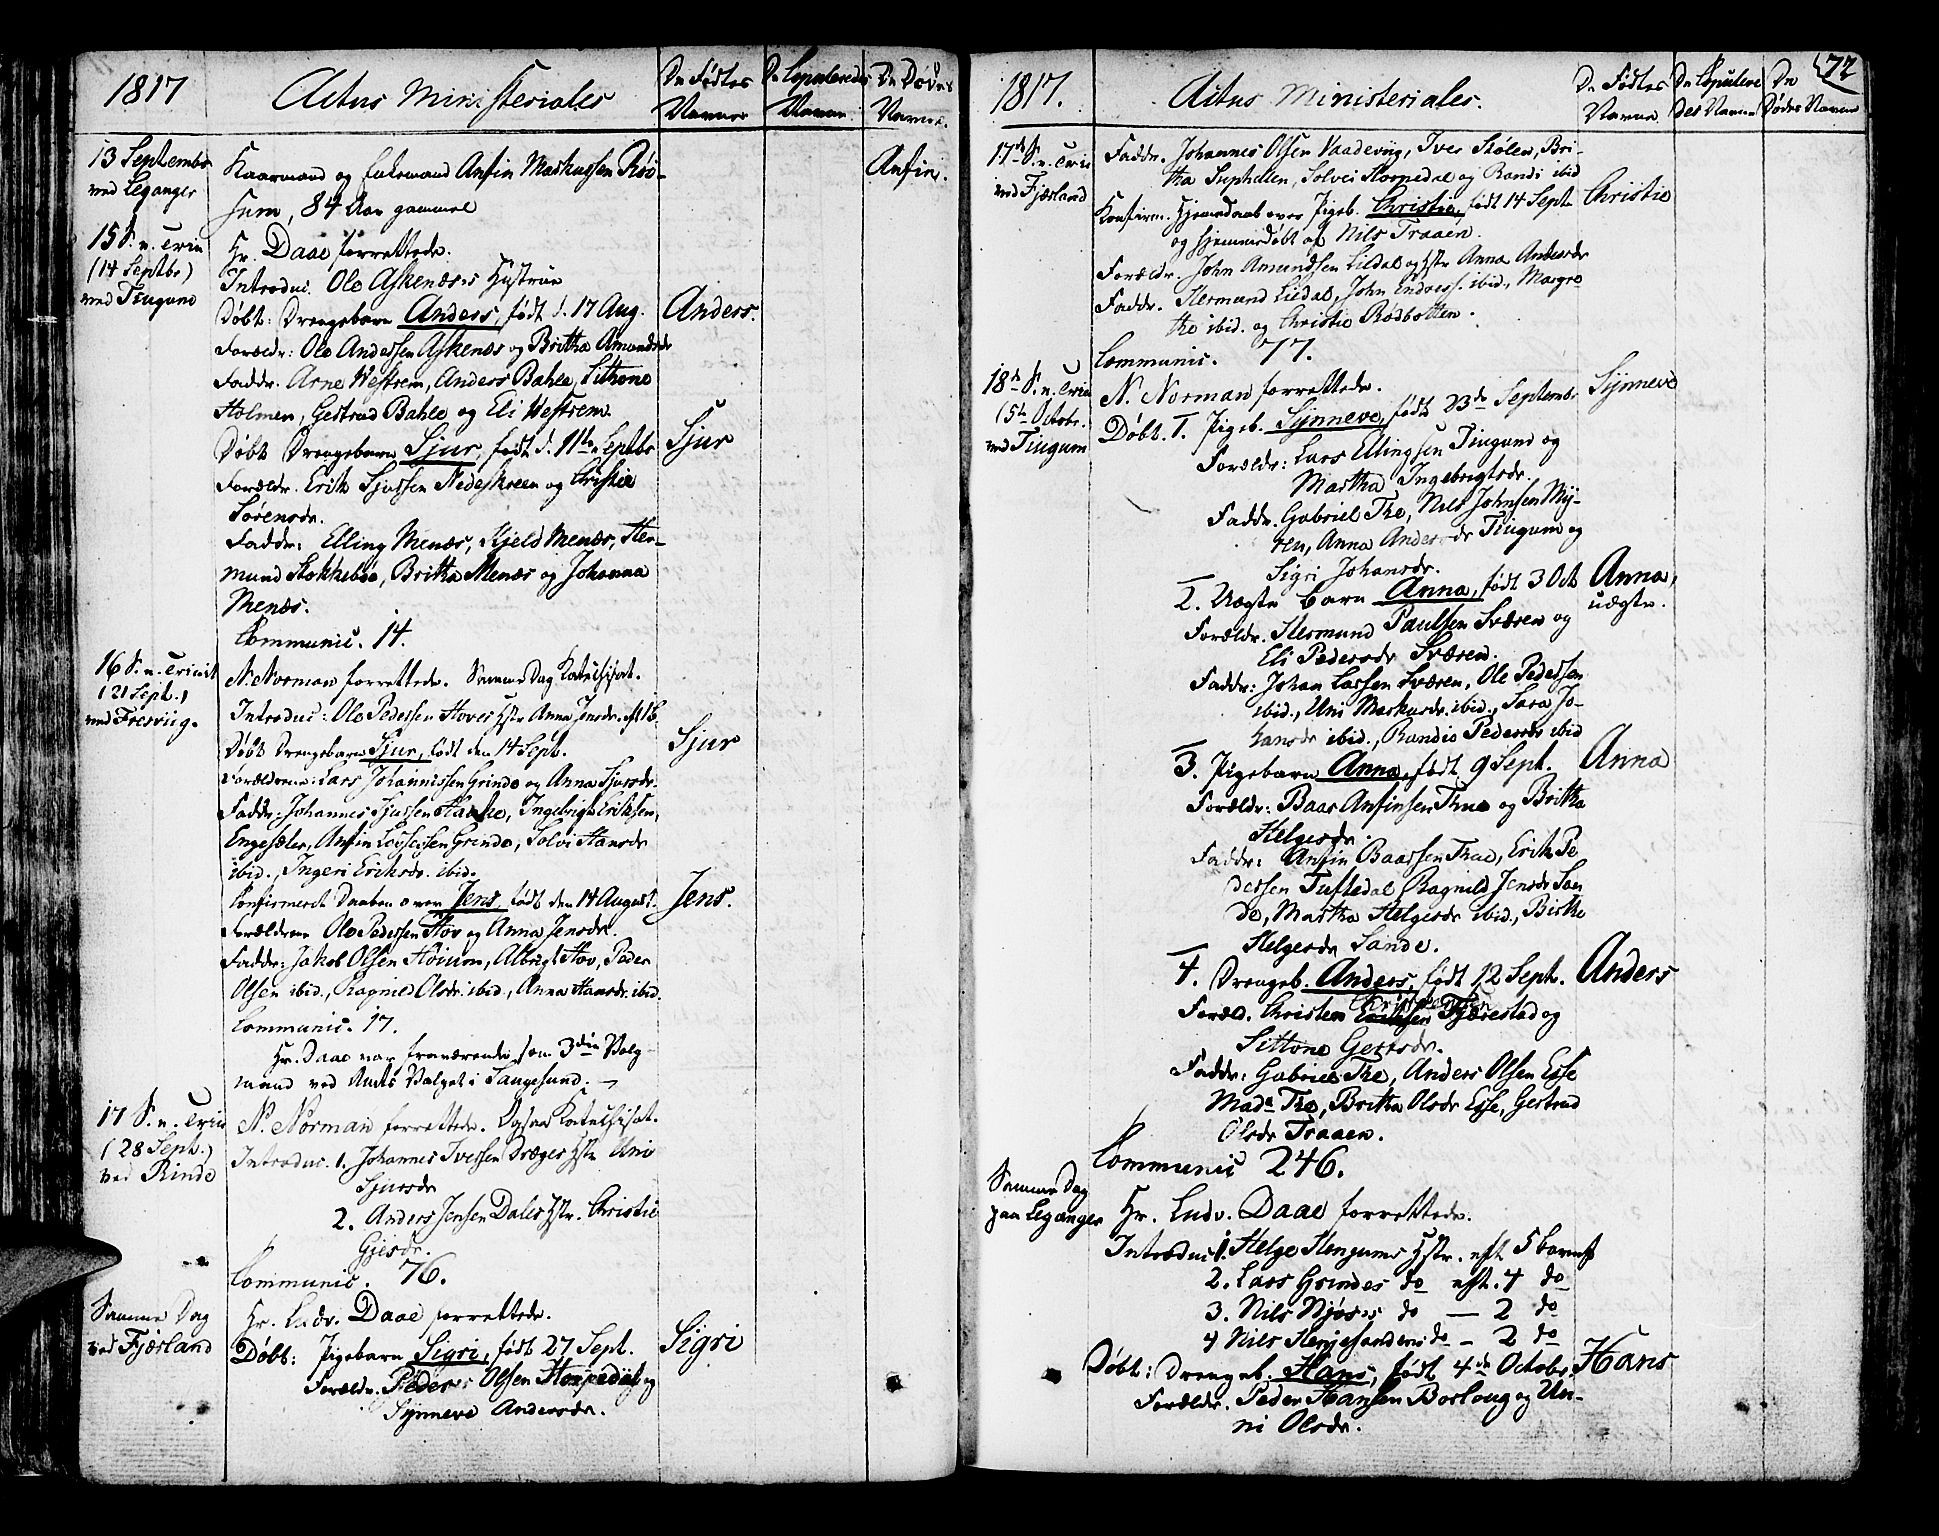 1817
Actus Ministeriales
De Fødtes Navne
De Copuleredes Navne
De Dødes Navne.
13 Septembr
ved Leganger
Kaarmand og Enkemand Anfin Markussen Røi-
sum, 84 Aar gammel
Anfin.
15 S. n. Trin
(14 Septbr)
ved Tiugum
Hr. Daae forrettede.
Introduc. Ole Askenæses Hustrue
Døbt: Drengebarn Anders, født d. 17 Aug.
Anders.
Forældr: Ole Anderssen Askenæs og Britha Amundsdr
Faddr. Arne Westrem, Anders Bahle, Sithone
Holmen, Gertrud Bahle og Eli Westrem.
Døbt Drengebarn Sjur, født d. 11te Septbr
Sjur
Forældr. Erik Sjursen Nedeskreen og Christie
Sørensdr.
Faddr: Elling Menæs, Kjeld Menæs, Her-
mund Stokkebøe, Britha Menæs og Johanna
Menæs.
Communic. 14.
16 S. n. Trinit
(21 Sept.)
ved Fresviig.
N. Norman forrettede. Samme Dag Katechisat.
Introduc: Ole Pedersen Hoves Hstr Anna Jensdr. eft 1 b.
Døbt Drengebarn Sjur, født den 14 Sept.
Sjur
Forældrene: Lars Johannessen Grinde og Anna Sjursdr.
Faddr: Johannes Sjursen, Ingebrigt Eriksen,
Engesæter, Anfin Grinde, Solvi Hansdr
ibid., Ingeri Eriksdr. ibid.
Confirmeret Daaben over Jens, født den 14 August.
Jens.
Forældrene Ole Pedersen Hov og Anna Jensdr.
Faddr: Jakob Olsen Høium, Albrigt Hov, Peder
Olsen ibid., Ragnild Olsdr. ibid., Anna Hansdr. ibid.
Communic. 17.
Hr. Daae var fraværende som 3die Valg-
mand ved Amts Valget i Laugesund.
17 S. n. Trin
(28 Sept.)
ved Rinde
N. Norman forrettede. Ogsaa Katechisat.
Introduc. 1. Johannes Iversen Dræges Hstr Uni
Sjursdr
2. Anders Jensen Dales Hstr. Christie
Gjesdr.
Communic. 76.
Samme Dag
ved Fjærland
Hr. Ludv. Daae forrettede.
Døbt: Pigebarn Sigri, født 27 Sept.
Sigri
Forældr. Peder Olsen og
Synneve Andersdr.
77
1817.
Actus Ministeriales.
De Fødtes Navne
De Copulere des Navne
De Dødes Navne
17de S. n. Trin
ved Fjærland
Faddr. Johannes Olsen Vaadeviig, Iver Stølen, Bri-
tha Suphellen, Solvei og Randi ibid
Konfirm. Hjemedaab over Pigeb. Christie, født 14 Sept.
Christie
og hjemmedøbt af Nils Traaen.
Forældr. John Amundsen Liedal og Hstr Anna Andersdr
Faddr. Hermund Liedal, John Endress. ibid., Margre-
the ibid. og Christie Rødbotten.
Communic. 77.
18de S. n. Trin
(5te Octobr.
ved Tiugum
N. Norman forrettede.
Døbt. 1. Pigeb. Synneve, født 23de September
Synneve
Forældr: Lars Ellingsen Tiugum og
Martha Ingebrigtsdr.
Faddr. Gabriel Tho, Nils Johnsen My-
ren, Anna Andersdr Tiugum og
Sigri Johansdr.
2. Uægte barn Anna, født 3 Oct
Anna,
uægte.
Forældr. Hermund Paulsen Sværen og
Eli Pedersdr Sværen.
Faddr: Johan Larsen Sværen, Ole Pedersen
ibid., Uni Markusdr. ibid., Sara Jo-
hansdr ibid., Randi Pedersdr ibid
3. Pigebarn Anna, født 9 Sept.
Anna
Forældr: Baar Anfinsen Thue og Britha
Helgesdr.
Faddr: Anfin Baarsen Thue, Erik Pe
dersen Tuftedal Ragnild Jensdr San
de, Martha Helgesdr ibid., Birthe
Helgesdr Sande.
4. Drengeb. Anders, født 12 Sept.
Anders
Foræld. Christen Fjærestad og
Sittone Gertsdr.
Faddr: Gabriel Tho, Anders Olsen Esse
Mada Tho, Britha Olsdr Esse, Gertrud
Olsdr Traaen.
Communic 246.
Samme Dag
paa Leganger
Hr. Ludv. Daae forrettede.
Introduc: 1. Helge Hengums Hstr. eft 5 barns
2. Lars Grindes do eft. 4 do
3. Nils Njøses do — 2 do
4 Nils Henjesandens do — 2 do
Døbt: Drengeb. Hans, født 4de Octobr.
Hans
Forældr. Peder Hansen Borlaug og Un-
ni Olsdr.